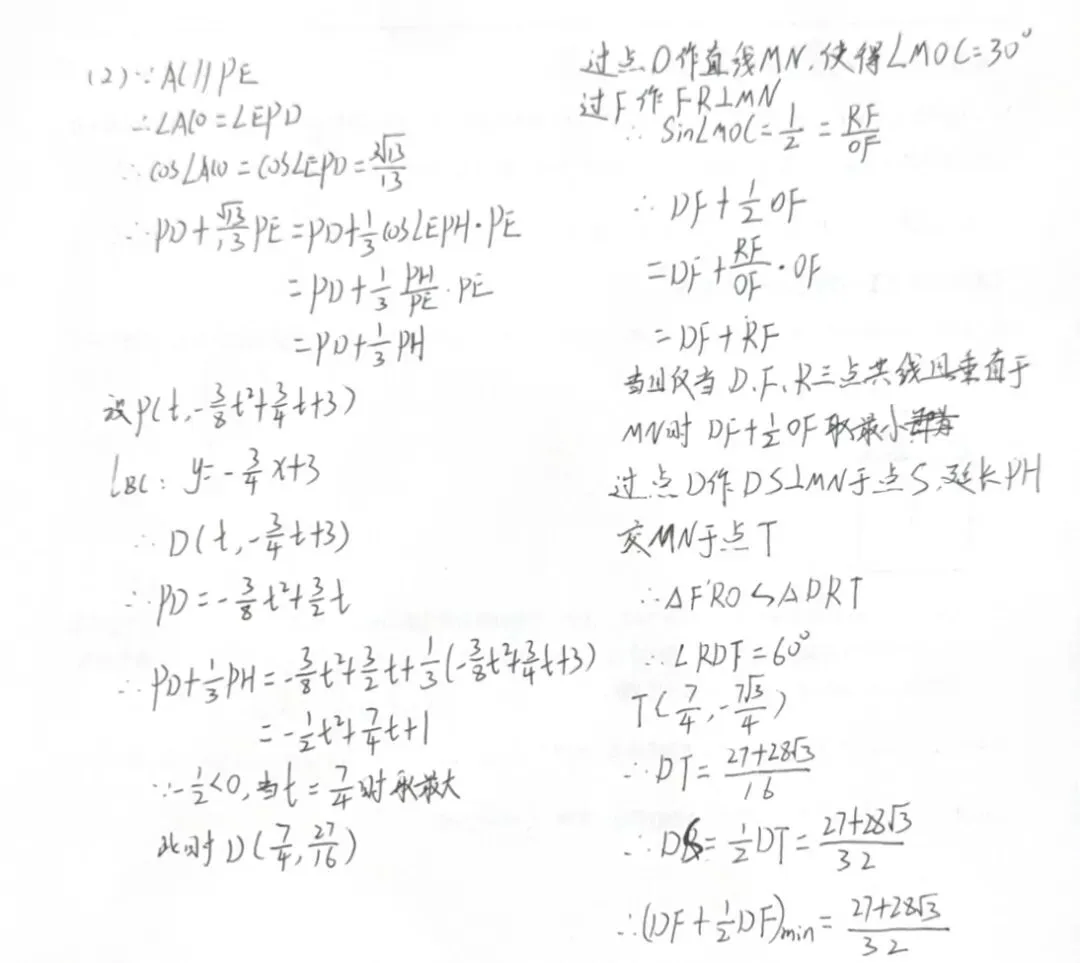 (2)∵AC∥PE
∴∠ACO=∠EPD
∴cos∠ACO=cos∠EPD=3√13/13
∴PD+√13/13PE=PD+1/3cos∠EPH·PE
=PD+1/3 PH/PE·PE
=PD+1/3PH
设P(t,-3/8t²+3/4t+3)
lBC:y=-3/4x+3
∴D(t,-3/4t+3)
∴PD=-3/8t²+3/2t
∴PD+1/3PH=-3/8t²+3/2t+1/3(-3/8t²+3/4t+3)
=-1/2t²+7/4t+1
∵-1/2<0,当t=7/4时取最大
此时D(7/4,27/16)
过点O作直线MN,使得∠MOC=30°
过F作FR⊥MN
∴Sin∠MOC=1/2=RF/OF
∴DF+1/2OF
=DF+RF/OF·OF
=DF+RF
当且仅当D.F、R三点共线且垂直于
MN时DF+1/2OF取最小
过点D作DS⊥MN于点S,延长PH
交MN于点T
∴△FRO∽△DRT
∴∠RDF=60°
T(7/4,-7√3/4)
∴DT=27+28√3/16
∴DS=1/2DT=27+28√3/32
∴(DF+1/2DF)min=27+28√3/32